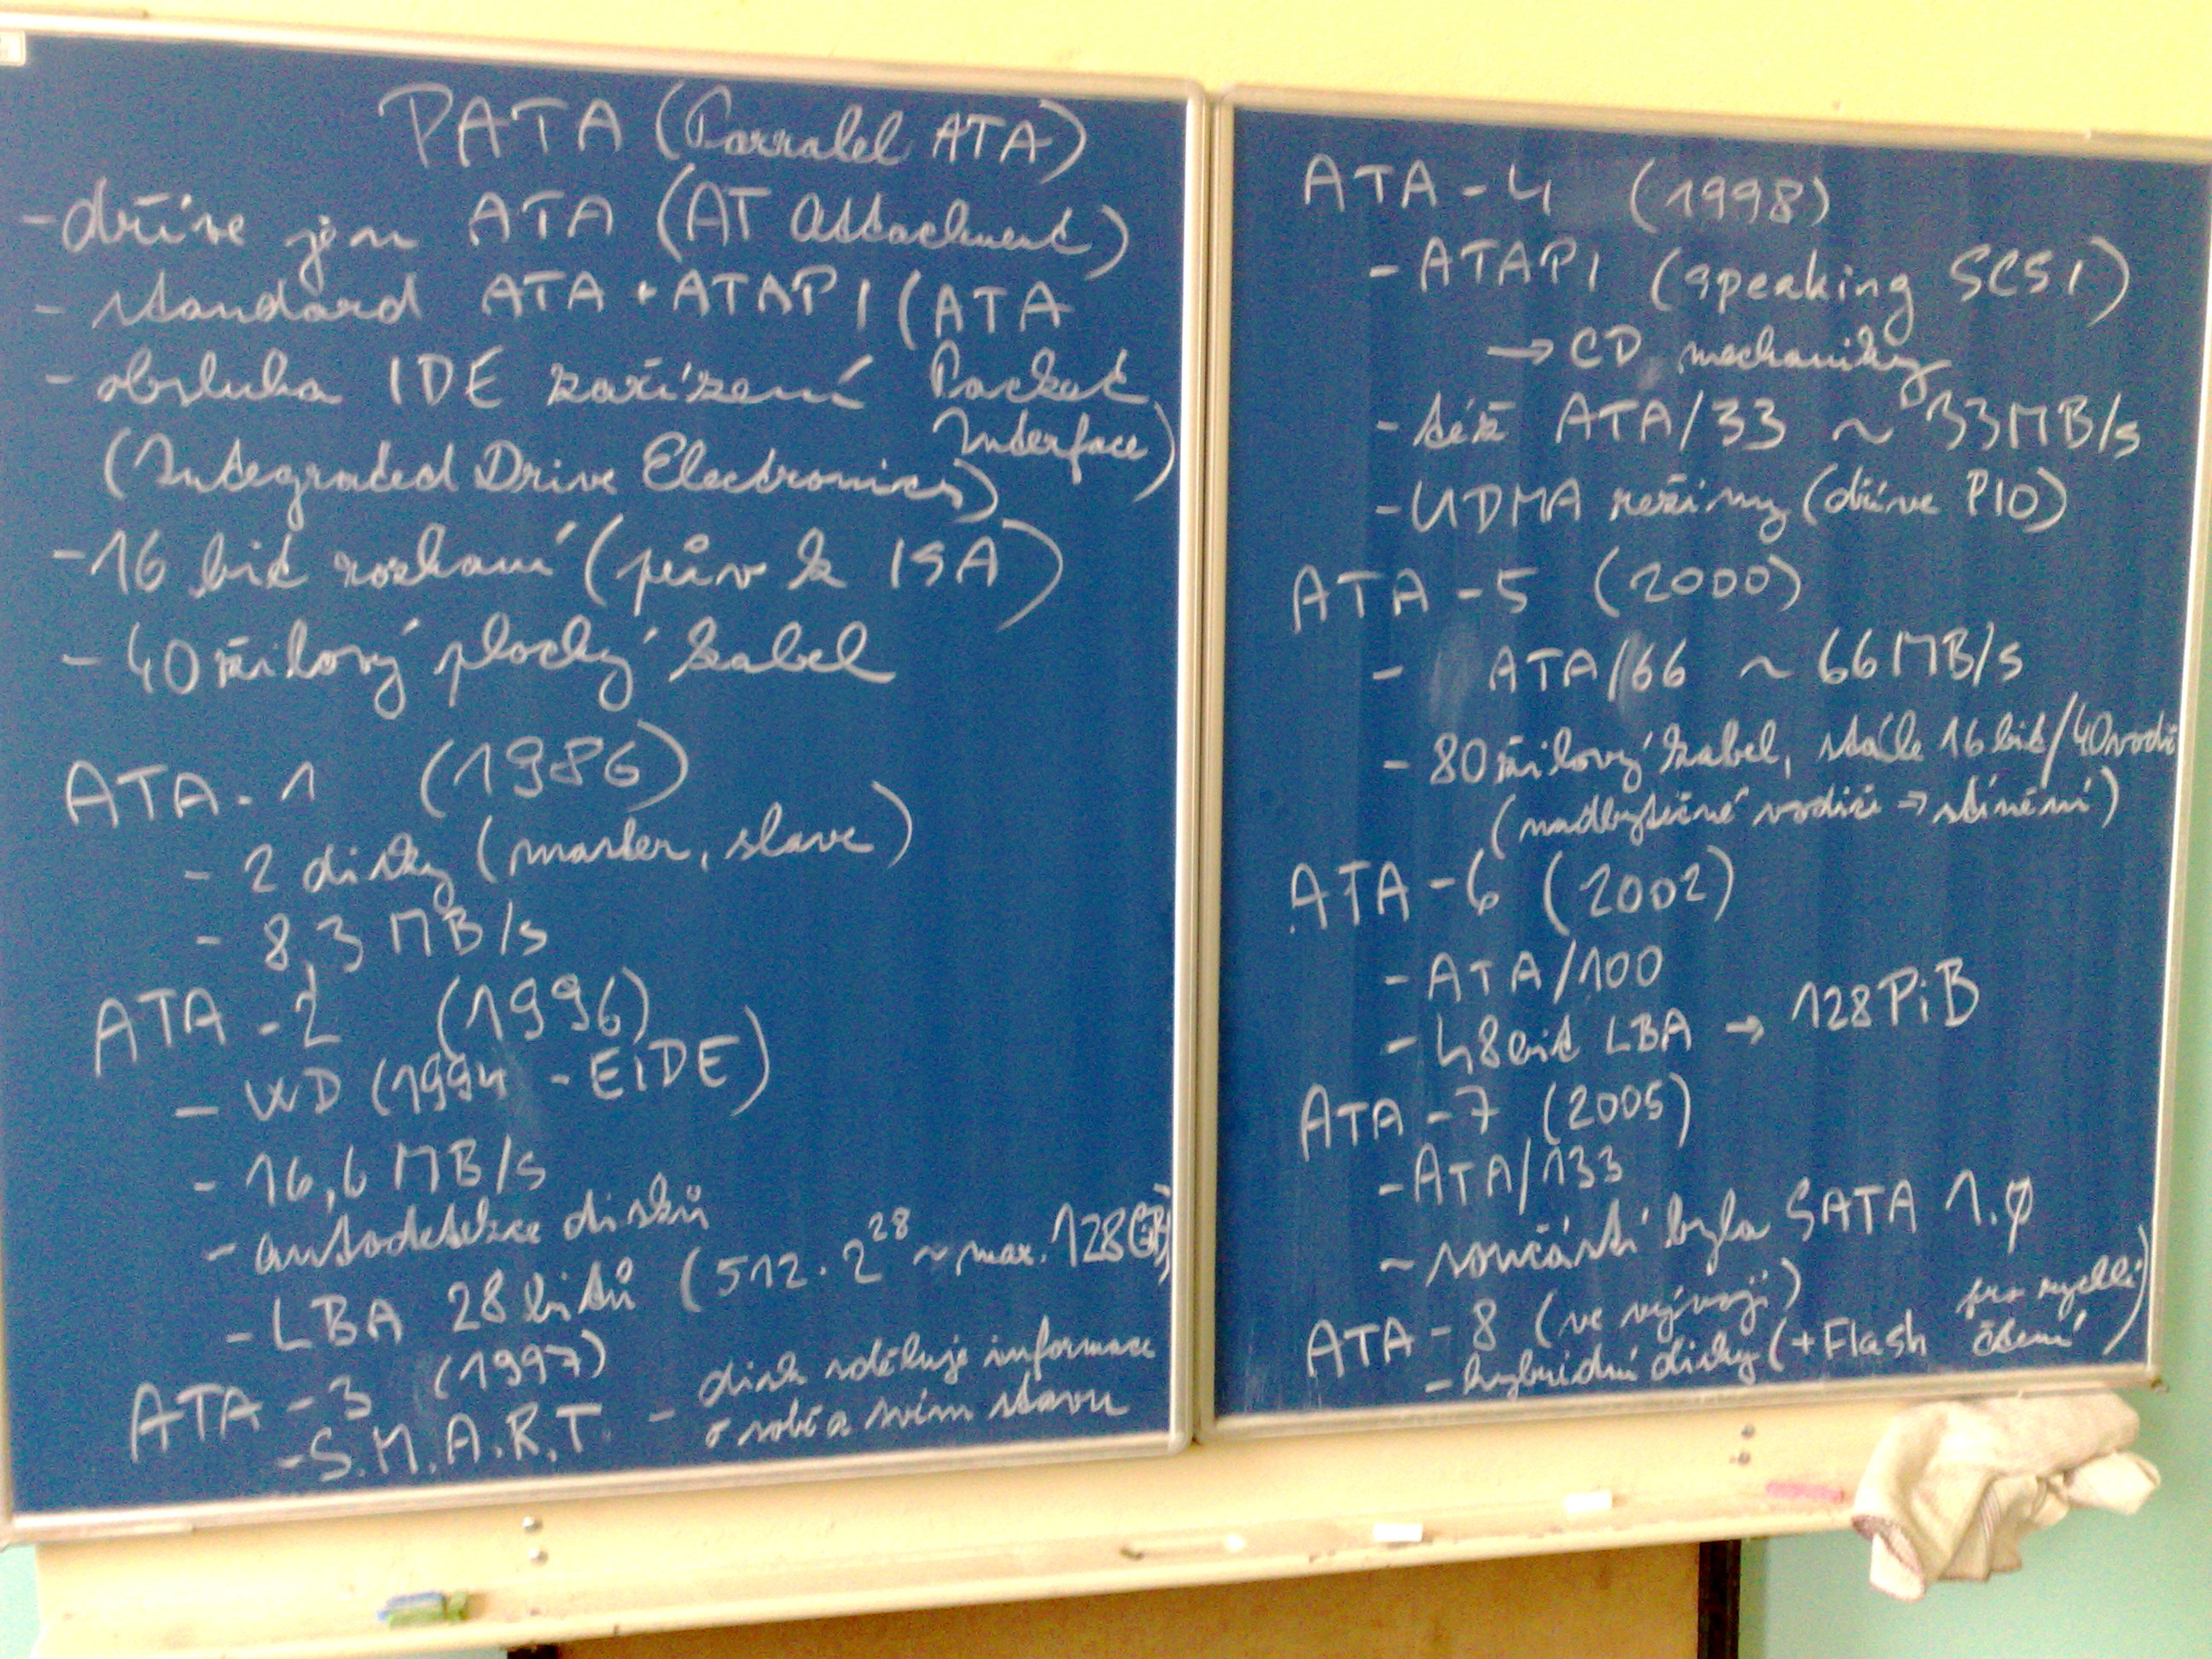 PATA (Parralel ATA)
- dříve jen ATA (AT Attachment)
- standard ATA + ATAPI (ATA
- obsluha IDE zařízení Packet
Interface)
(Integrated Drive Electronics)
- 16 bit rozhraní (pův k ISA)
- 40 žilový plochý kabel
ATA - 1 (1986)
- 2 disky (master, slave)
- 8,3 MB/s
ATA - 2 (1996)
- WD (1994 - EIDE)
- 16,6 MB/s
- autodetekce disků
- LBA 28 bitů (512 . 2^28 ~ max. 128 GB)
ATA - 3 (1997)
- S.M.A.R.T. - disk sděluje informace
o sobě a svém stavu
ATA - 4 (1998)
- ATAPI (speaking SCSI)
→ CD mechaniky
- též ATA/33 ~ 33MB/s
- UDMA režimy (dříve PIO)
ATA - 5 (2000)
- ATA/66 ~ 66 MB/s
- 80 žilový kabel, stále 16 bit/40 vodi
(nadbytečné vodiče → stínění)
ATA - 6 (2002)
- ATA/100
- 48 bit LBA → 128 PiB
ATA - 7 (2005)
- ATA/133
- součástí byla SATA 1.0
ATA - 8 (ve vývoji)
- hybridní disky (+ Flash pro rychlé
čtení)